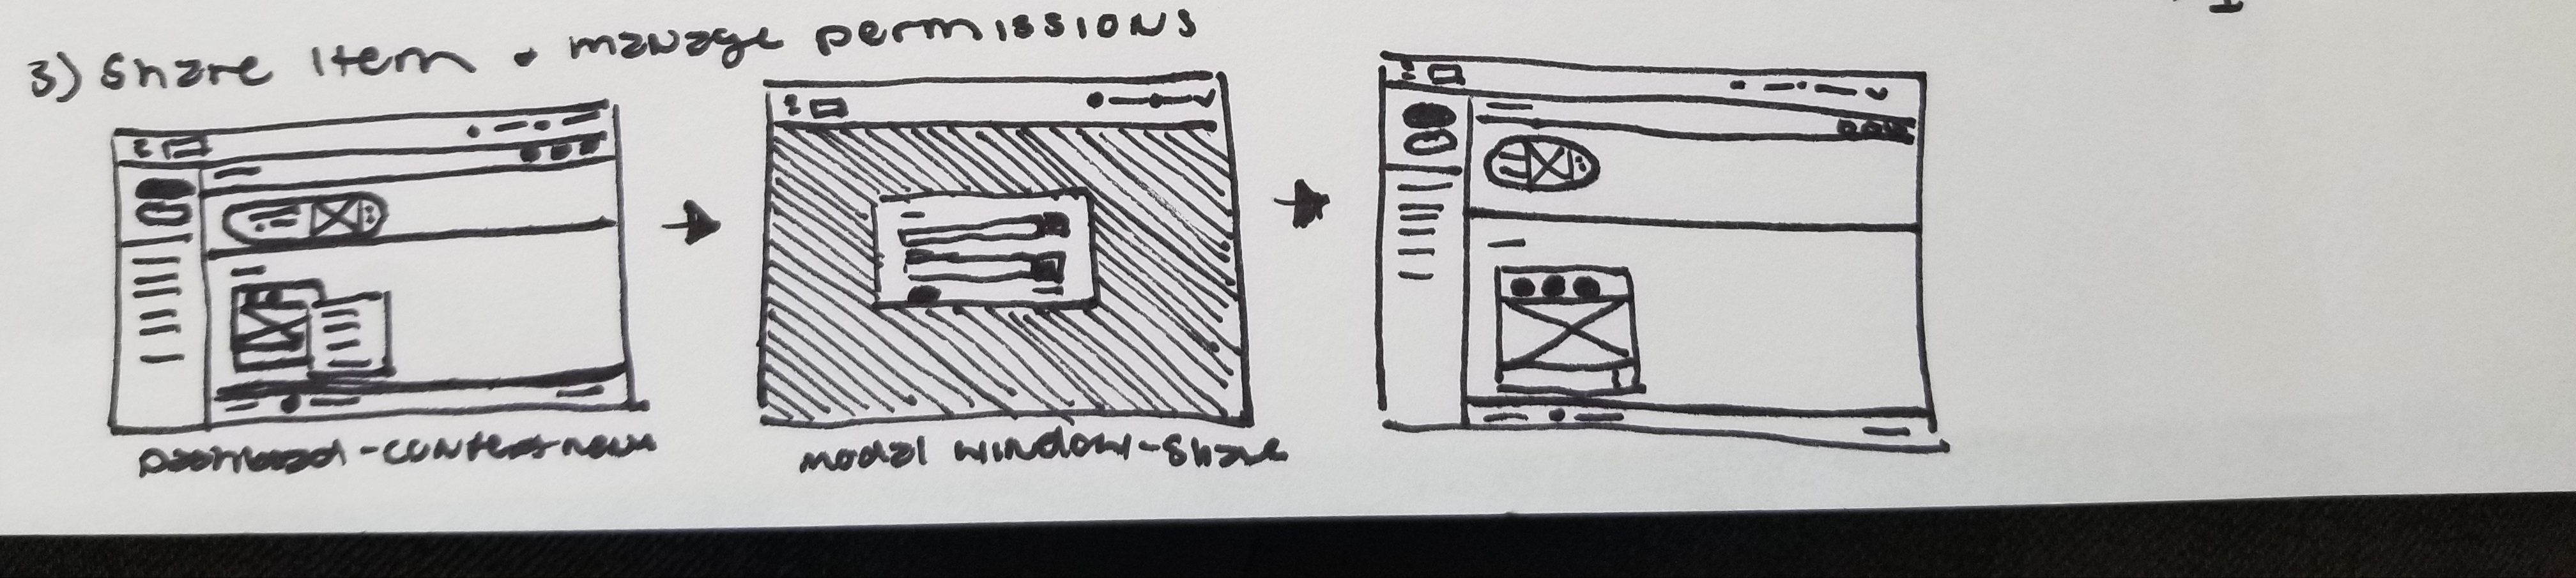 3) Share Item • manage permissions
Dashboard - context menu
modal window - share